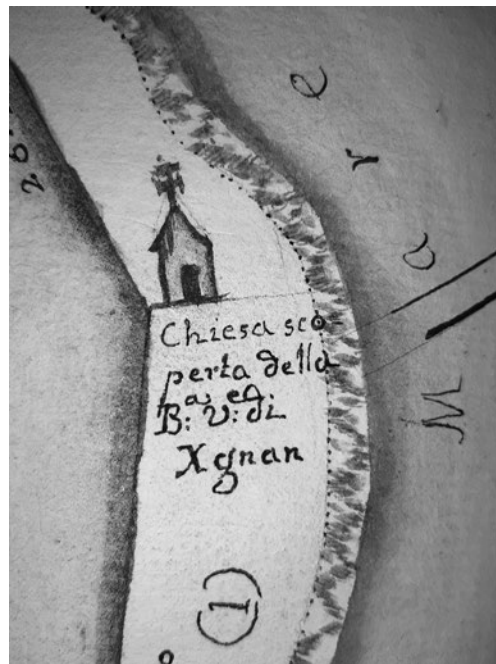 Chiesa sco-
perta della
B: V: di
Xgnan
1
Mare